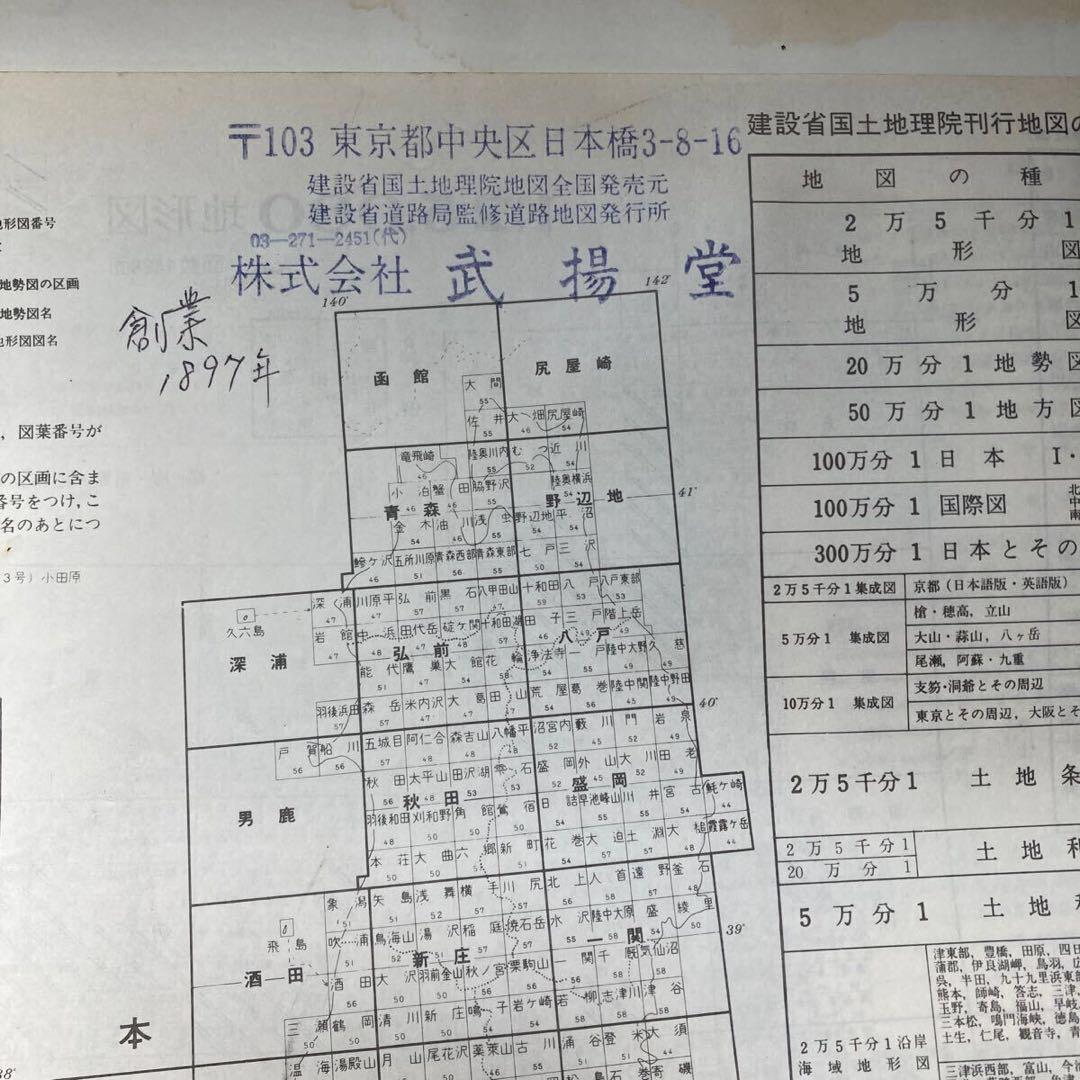 〒103 東京都中央区日本橋3-8-16
建設省国土地理院地図全国発売元
建設省道路局監修道路地図発行所
03-271-2451(代)
株式会社 武揚堂
創業
1897年
地形図番号
地勢図の区画
地勢図名
地形図図名
，図葉番号が
の区画に含ま
番号をつけ，こ
名のあとにつ
3号）小田原
本
140°
142°
函館
尻屋崎
大間
55
佐井
55
大畑
46
尻屋崎
54
竜飛崎
46
陸奥川内
55
むつ
52
近川
54
小泊
46
蟹田
46
脇野沢
55
陸奥横浜
54
青森
野辺地
41°
金木
54
油川
54
浅虫
野辺地
平沼
鰺ケ沢
46
五所川原
51
青森西部
青森東部
七戸
三沢
久六島
深浦
深浦
川原平
弘前
黒石
八甲田山
十和田
八戸
八戸東部
岩館
47
中浜
田代岳
碇ケ関
十和田湖
田子
三戸
階上岳
弘前
八戸
能代
51
鷹巣
大館
花輪
浄法寺
一戸
陸中大野
久慈
羽後浜田
森岳
米内沢
大葛
田山
荒屋
葛巻
陸中関
陸中野田
40°
男鹿
戸賀
56
船川
56
五城目
阿仁合
森吉山
八幡平
沼宮内
藪川
門
岩泉
秋田
太平山
田沢湖
雫石
盛岡
外山
大川
田老
秋田
盛岡
魹ケ崎
44
羽後和田
刈和野
角館
鶯宿
日詰
早池峰山
川井
宮古
本荘
大曲
六郷
新町
花巻
大迫
土淵
大槌
霞露ケ岳
44
象潟
矢島
浅舞
横手
川尻
北上
人首
遠野
釜石
飛島
吹浦
鳥海山
湯沢
稲庭
焼石岳
水沢
陸中大原
盛
綾里
39°
酒田
新庄
一関
酒田
大沢
羽前金山
秋ノ宮
栗駒山
一関
千厩
気仙沼
三瀬
鶴岡
清川
新庄
鳴子
岩ケ崎
若柳
志津川
津谷
温海
湯殿山
月山
尾花沢
薬莱山
古川
涌谷
登米
大須
38°
建設省国土地理院刊行地図の
地図の種
2万5千分1
地形図
5万分1
地形図
20万分1地勢図
50万分1地方図
100万分1日本 I・
100万分1国際図
300万分1日本とその
2万5千分1集成図
京都（日本語版・英語版）
5万分1 集成図
槍・穂高，立山
大山・蒜山，八ヶ岳
尾瀬，阿蘇・九重
10万分1 集成図
支笏・洞爺とその周辺
東京とその周辺，大阪とそ
2万5千分1 土地条
2万5千分1
20万分1
土地利
5万分1 土地
2万5千分1沿岸
海域地形図
津東部，豊橋，田原，四日
蒲郡，伊良湖岬，鳥羽，広
呉，半田，九十九里浜東部
熊本，師崎，答志，三津
玉野，寄島，福山，早岐
三本松，鳴門海峡，徳島
土生，仁尾，観音寺，青
三津浜西部，富山，今治